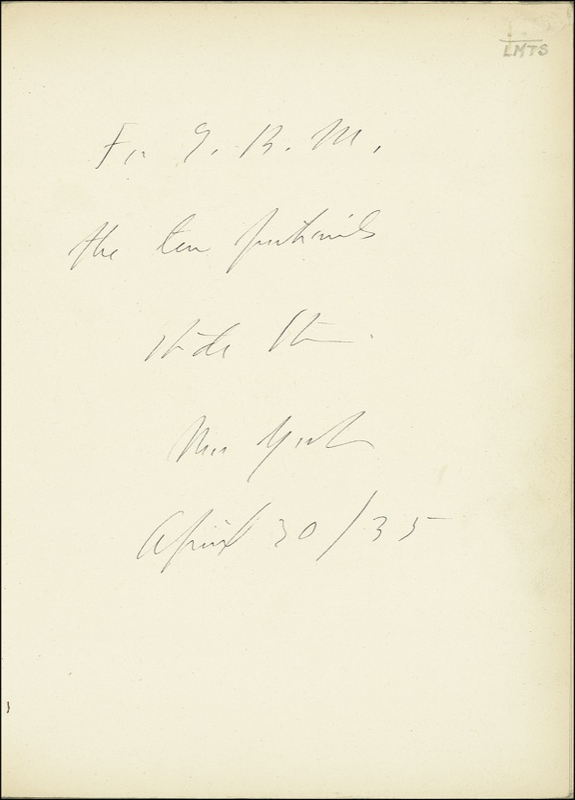 LMTS
For M.
the ten portraits
Stein.
New York
April 30/35